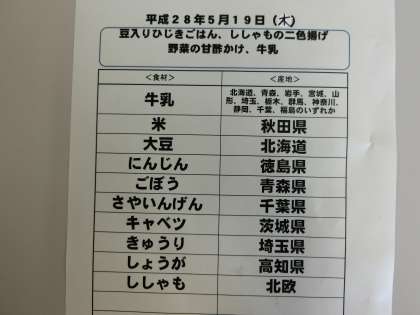 平成２８年５月１９日（木）
豆入りひじきごはん、ししゃもの二色揚げ
野菜の甘酢かけ、牛乳
＜食材＞ ＜産地＞
牛乳 北海道、青森、岩手、宮城、山
形、埼玉、栃木、群馬、神奈川、
静岡、千葉、福島のいずれか
米 秋田県
大豆 北海道
にんじん 徳島県
ごぼう 青森県
さやいんげん 千葉県
キャベツ 茨城県
きゅうり 埼玉県
しょうが 高知県
ししゃも 北欧